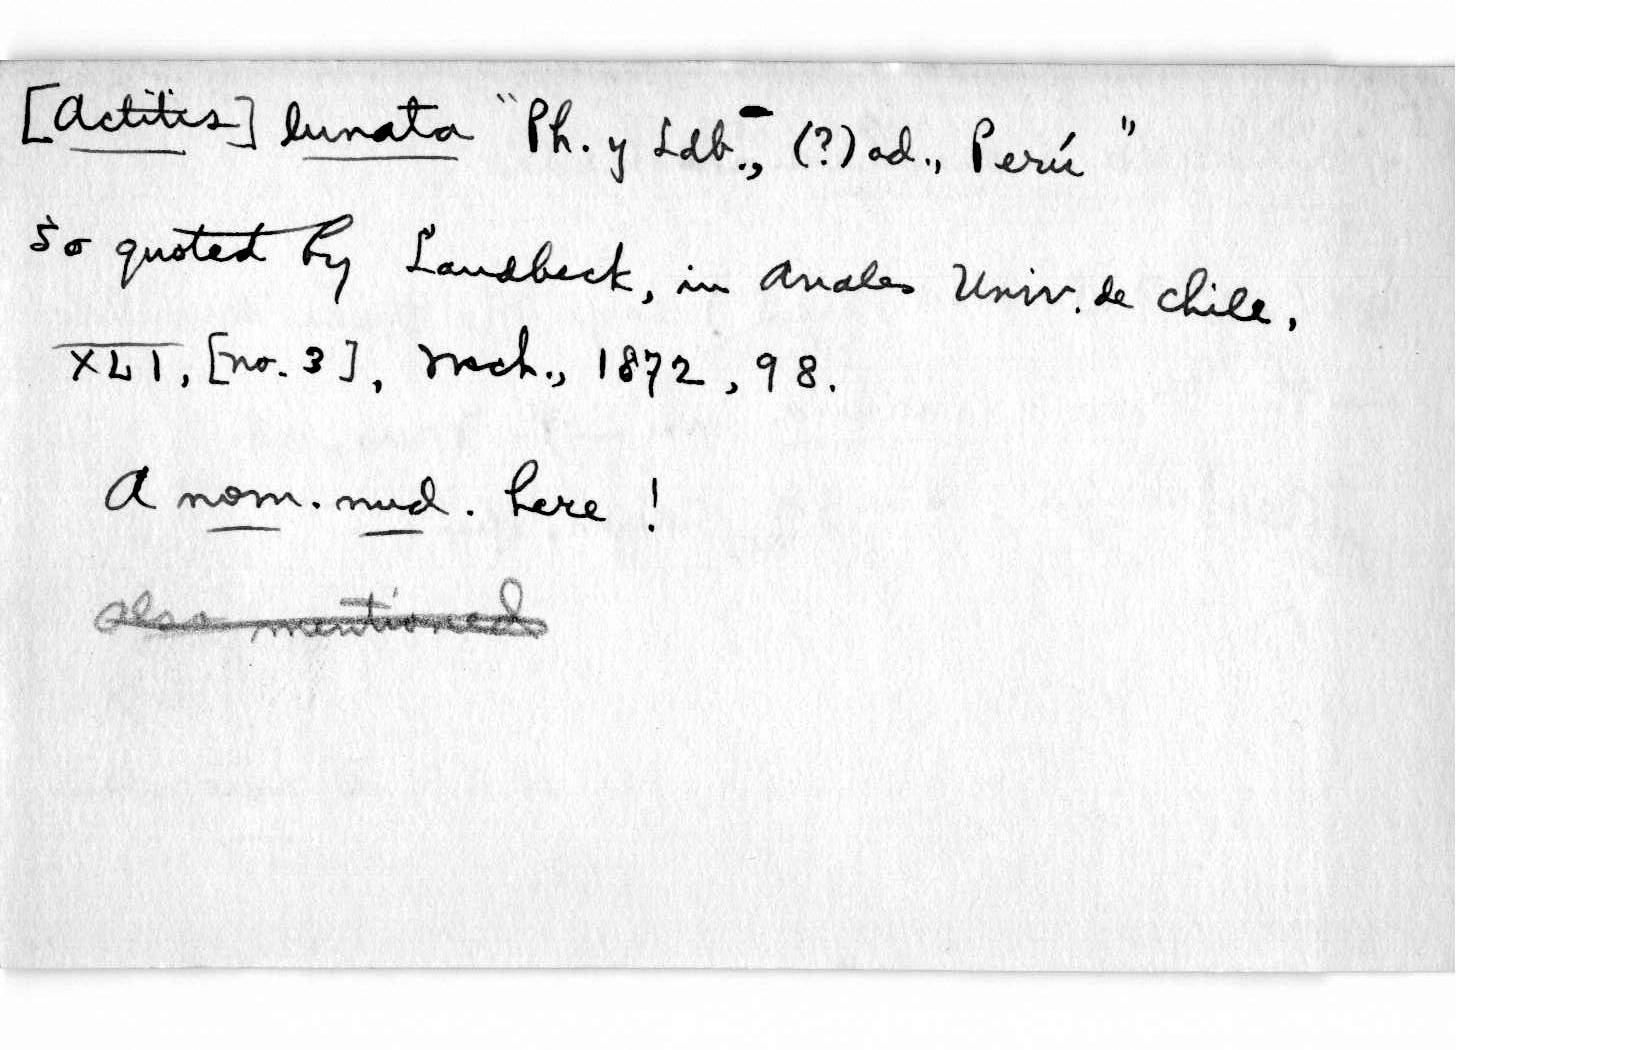 [Actitis] lunata "Ph. y Ldb., (?) ad., Perú"
So quoted by Landbeck, in Anales Univ. de Chile,
XLI, [no. 3], Mch., 1872, 98.
A nom. nud. here!
also mentioned